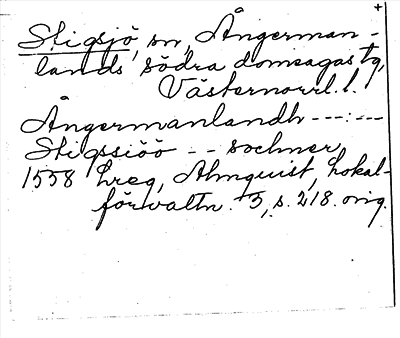 Stigsjö, sn, Ångerman-
lands södra domsagas tg,
Västernorrl. l.
Ångermanlandh ---:---
Stigssiöö -- sochner,
1558 hreg, Almquist, Lokal-
förvaltn. 3, s. 218. orig.